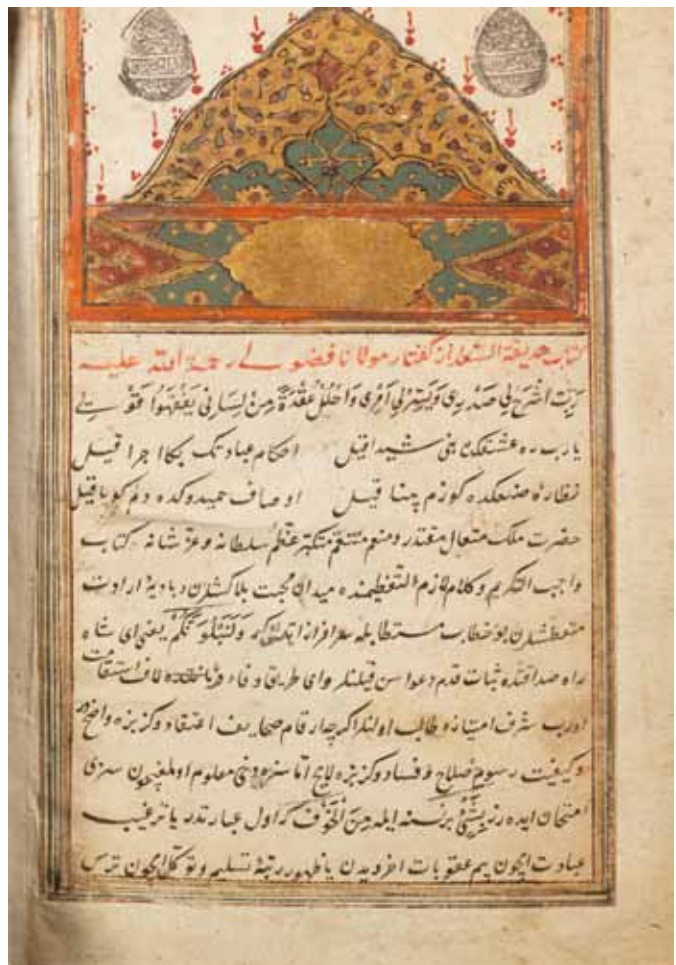 كتاب حديقة السعدا از كفتار مولانا فضولى رحمة الله عليه
رب اشرح لي صدري ويسر لي امري واحلل عقدة من لساني يفقهوا قولي
يارب ره عشقكده بنى شيدا قيل احكام عبادتك بكا اجرا قيل
نظاره صنعكده كوزم بينا قيل اوصاف حبيبوكده دلم كويا قيل
حضرت ملك متعال مقتدر ومنعم منتقم متكبر عظم سلطانه وعز شانه كتاب
واجب التكريم وكلام لازم التعظيمنده ميدان محبت بلاكشلرن وباديۀ ارادت
متعطشلرن بو خطاب مستطابله سرافراز ايتمشدركه وَلَنَبْلُوَنَّكُمْ يعنى اى شاه
راه صداقتده ثبات قدم دعواسن قيلنلر واى طريق وفاء ده لاف استقامت
اورب شرف امتيازه طالب اولنلر اكرچه ارقام صحايف اعتقادوكز بزه واضح در
وكيفيت رسوم صلاح وفسادوكز بزه لايح اما سزه دخى معلوم اولمغيچون سزى
امتحان ايده رز بِشَىْءٍ برنسنه ايله مِنَ الْخَوْفِ كه اول عبارتدر يا ترغيب
عبادت ايچون بيم عقوبات اخرويدن يا ظهور رتبۀ تسليم وتوكل ايچون ترس